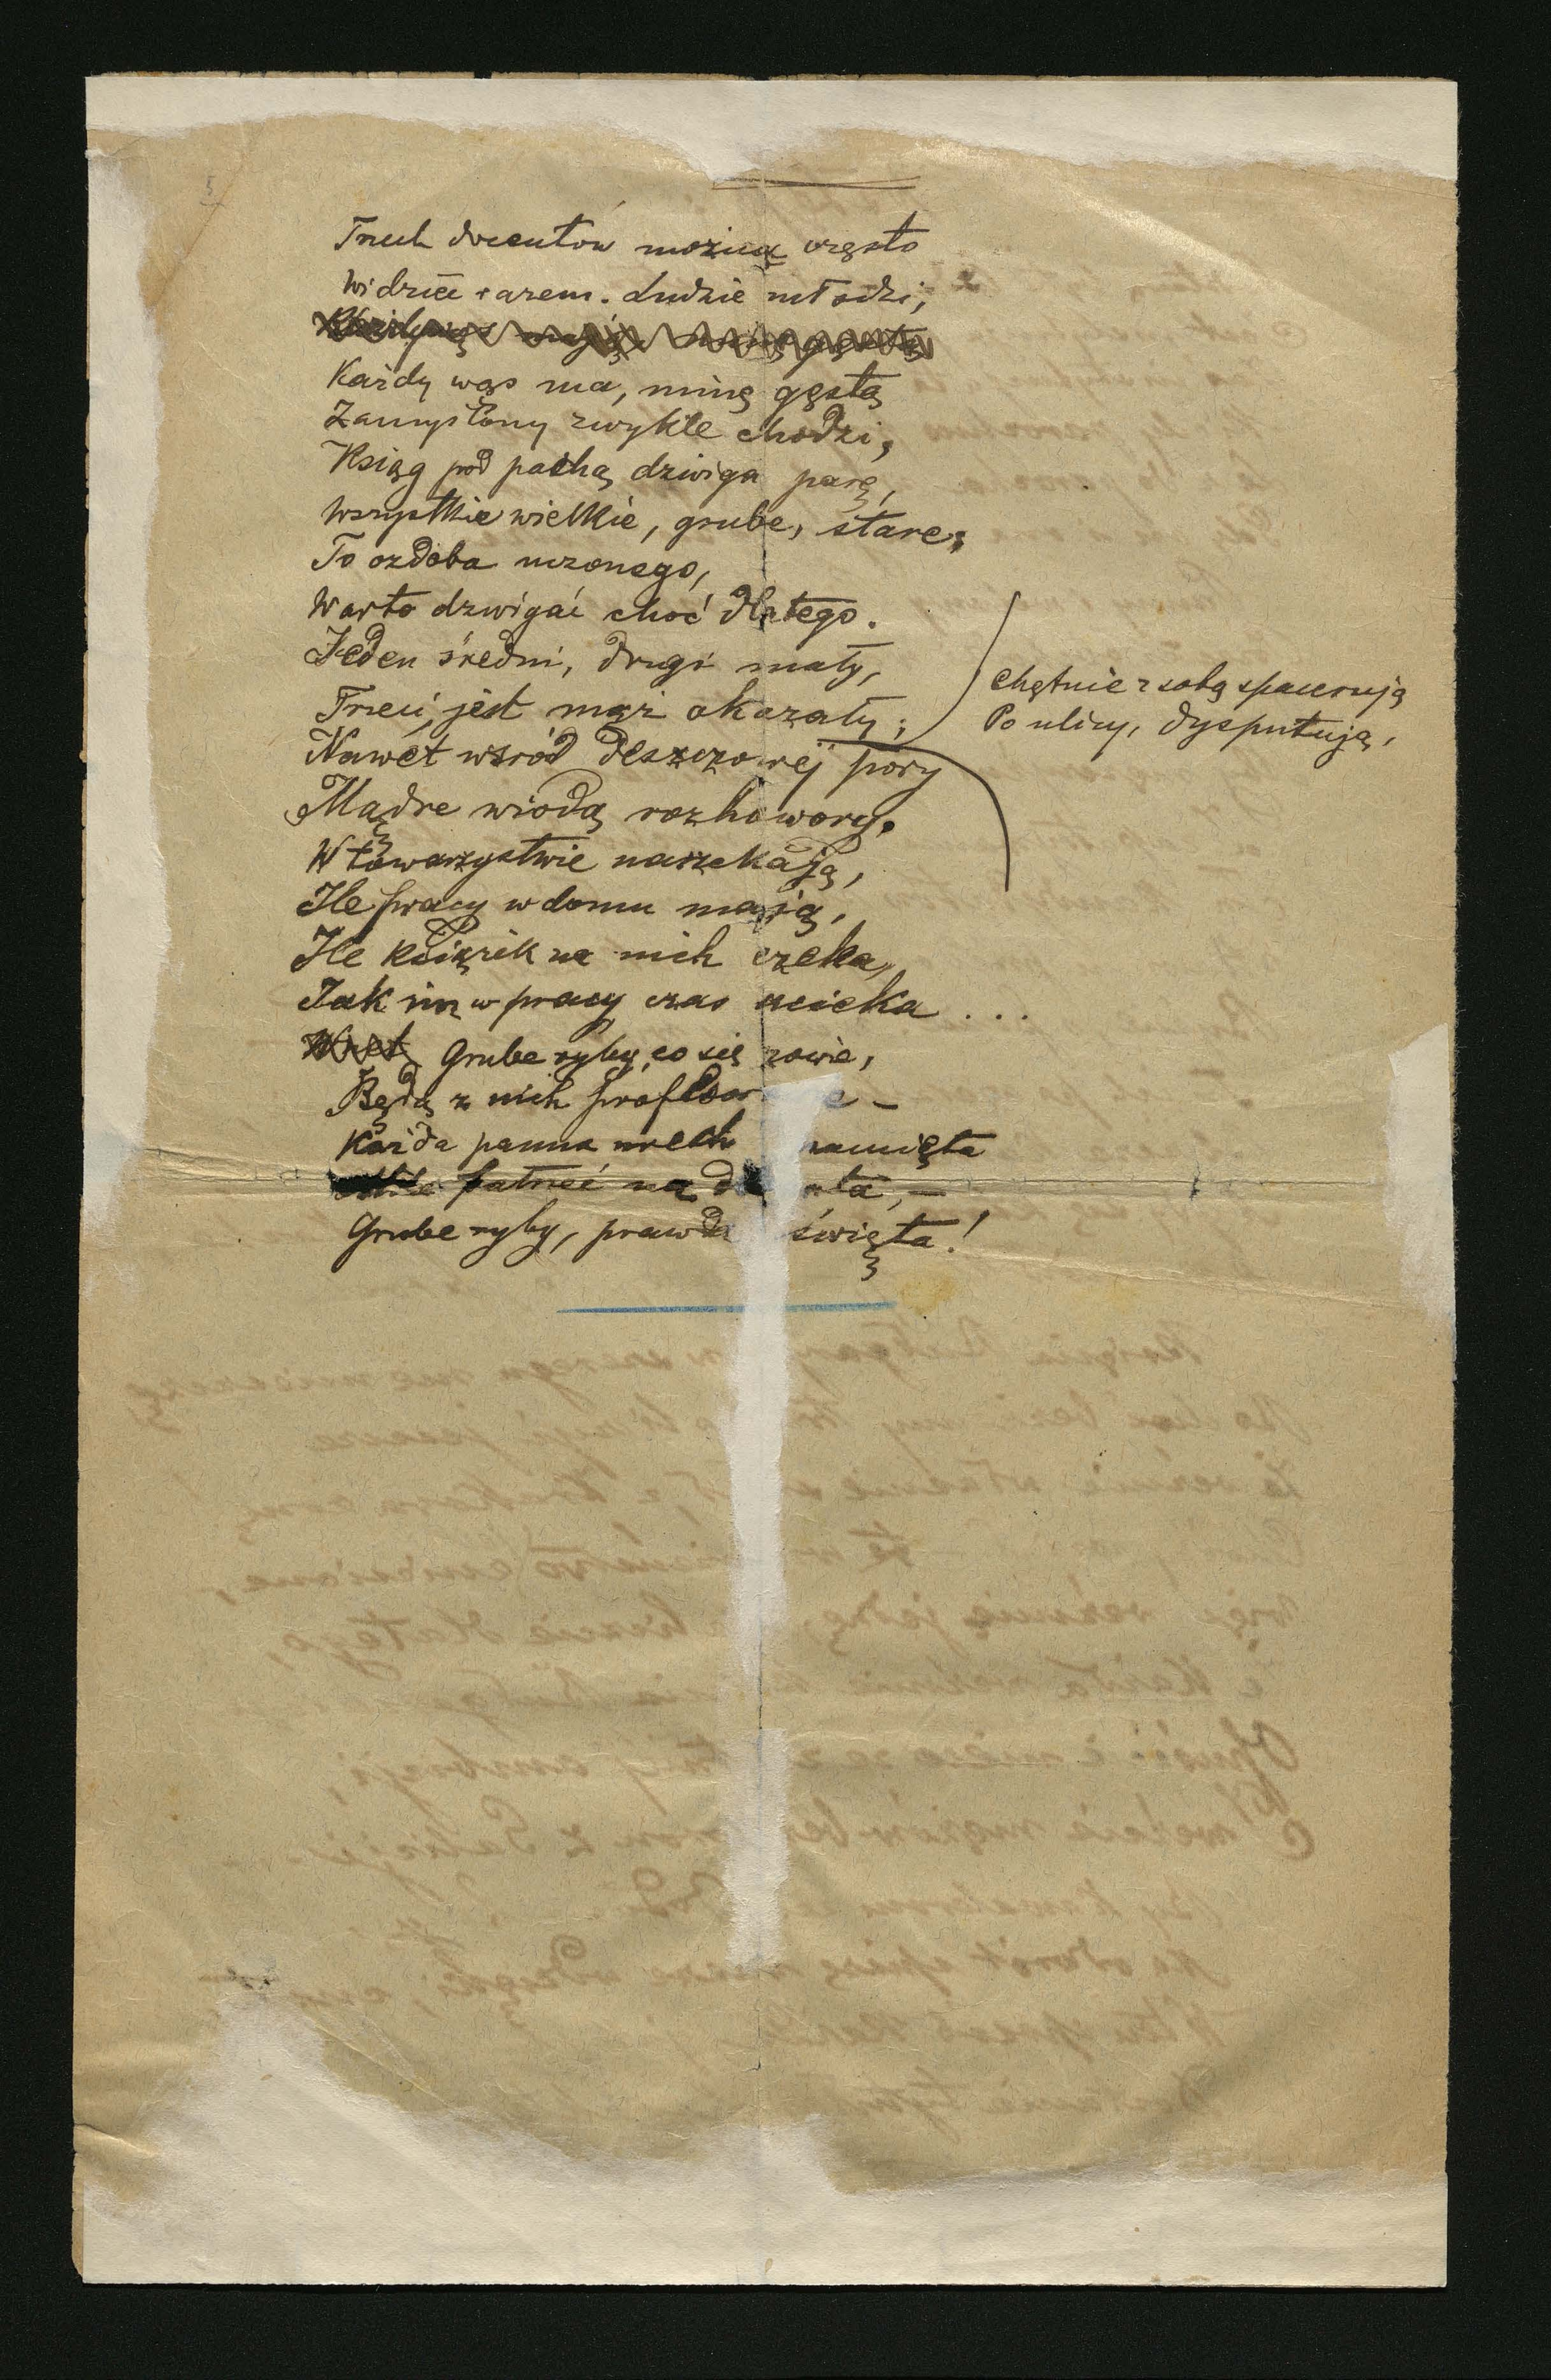 5
Trzech docentów można często
Widzieć razem. Ludzie młodzi,
Każdy wąs ma, minę gęstą
Zamyślony zwykle chodzi,
Ksiąg pod pachą dźwiga parę,
Wszystkie wielkie, grube, stare;
To ozdoba uczonego,
Warto dzwigać choć dlatego.
Jeden średni, drugi mały,
Trzeci jest mąż okazały;
Chętnie z sobą spacerują
Po ulicy, dysputują,
Nawet wśród deszczowej pory
Mądre wiodą rozhowory.
W towarzystwie narzekają,
Ile pracy w domu mają,
Ile książek na nich czeka,
Jak im w pracy czas ucieka ...
Grube ryby, co się zowie,
Będą z nich profesor e –
Każda panna niech pamięta
patrzeć na do nta, –
Grube ryby, prawda święta!